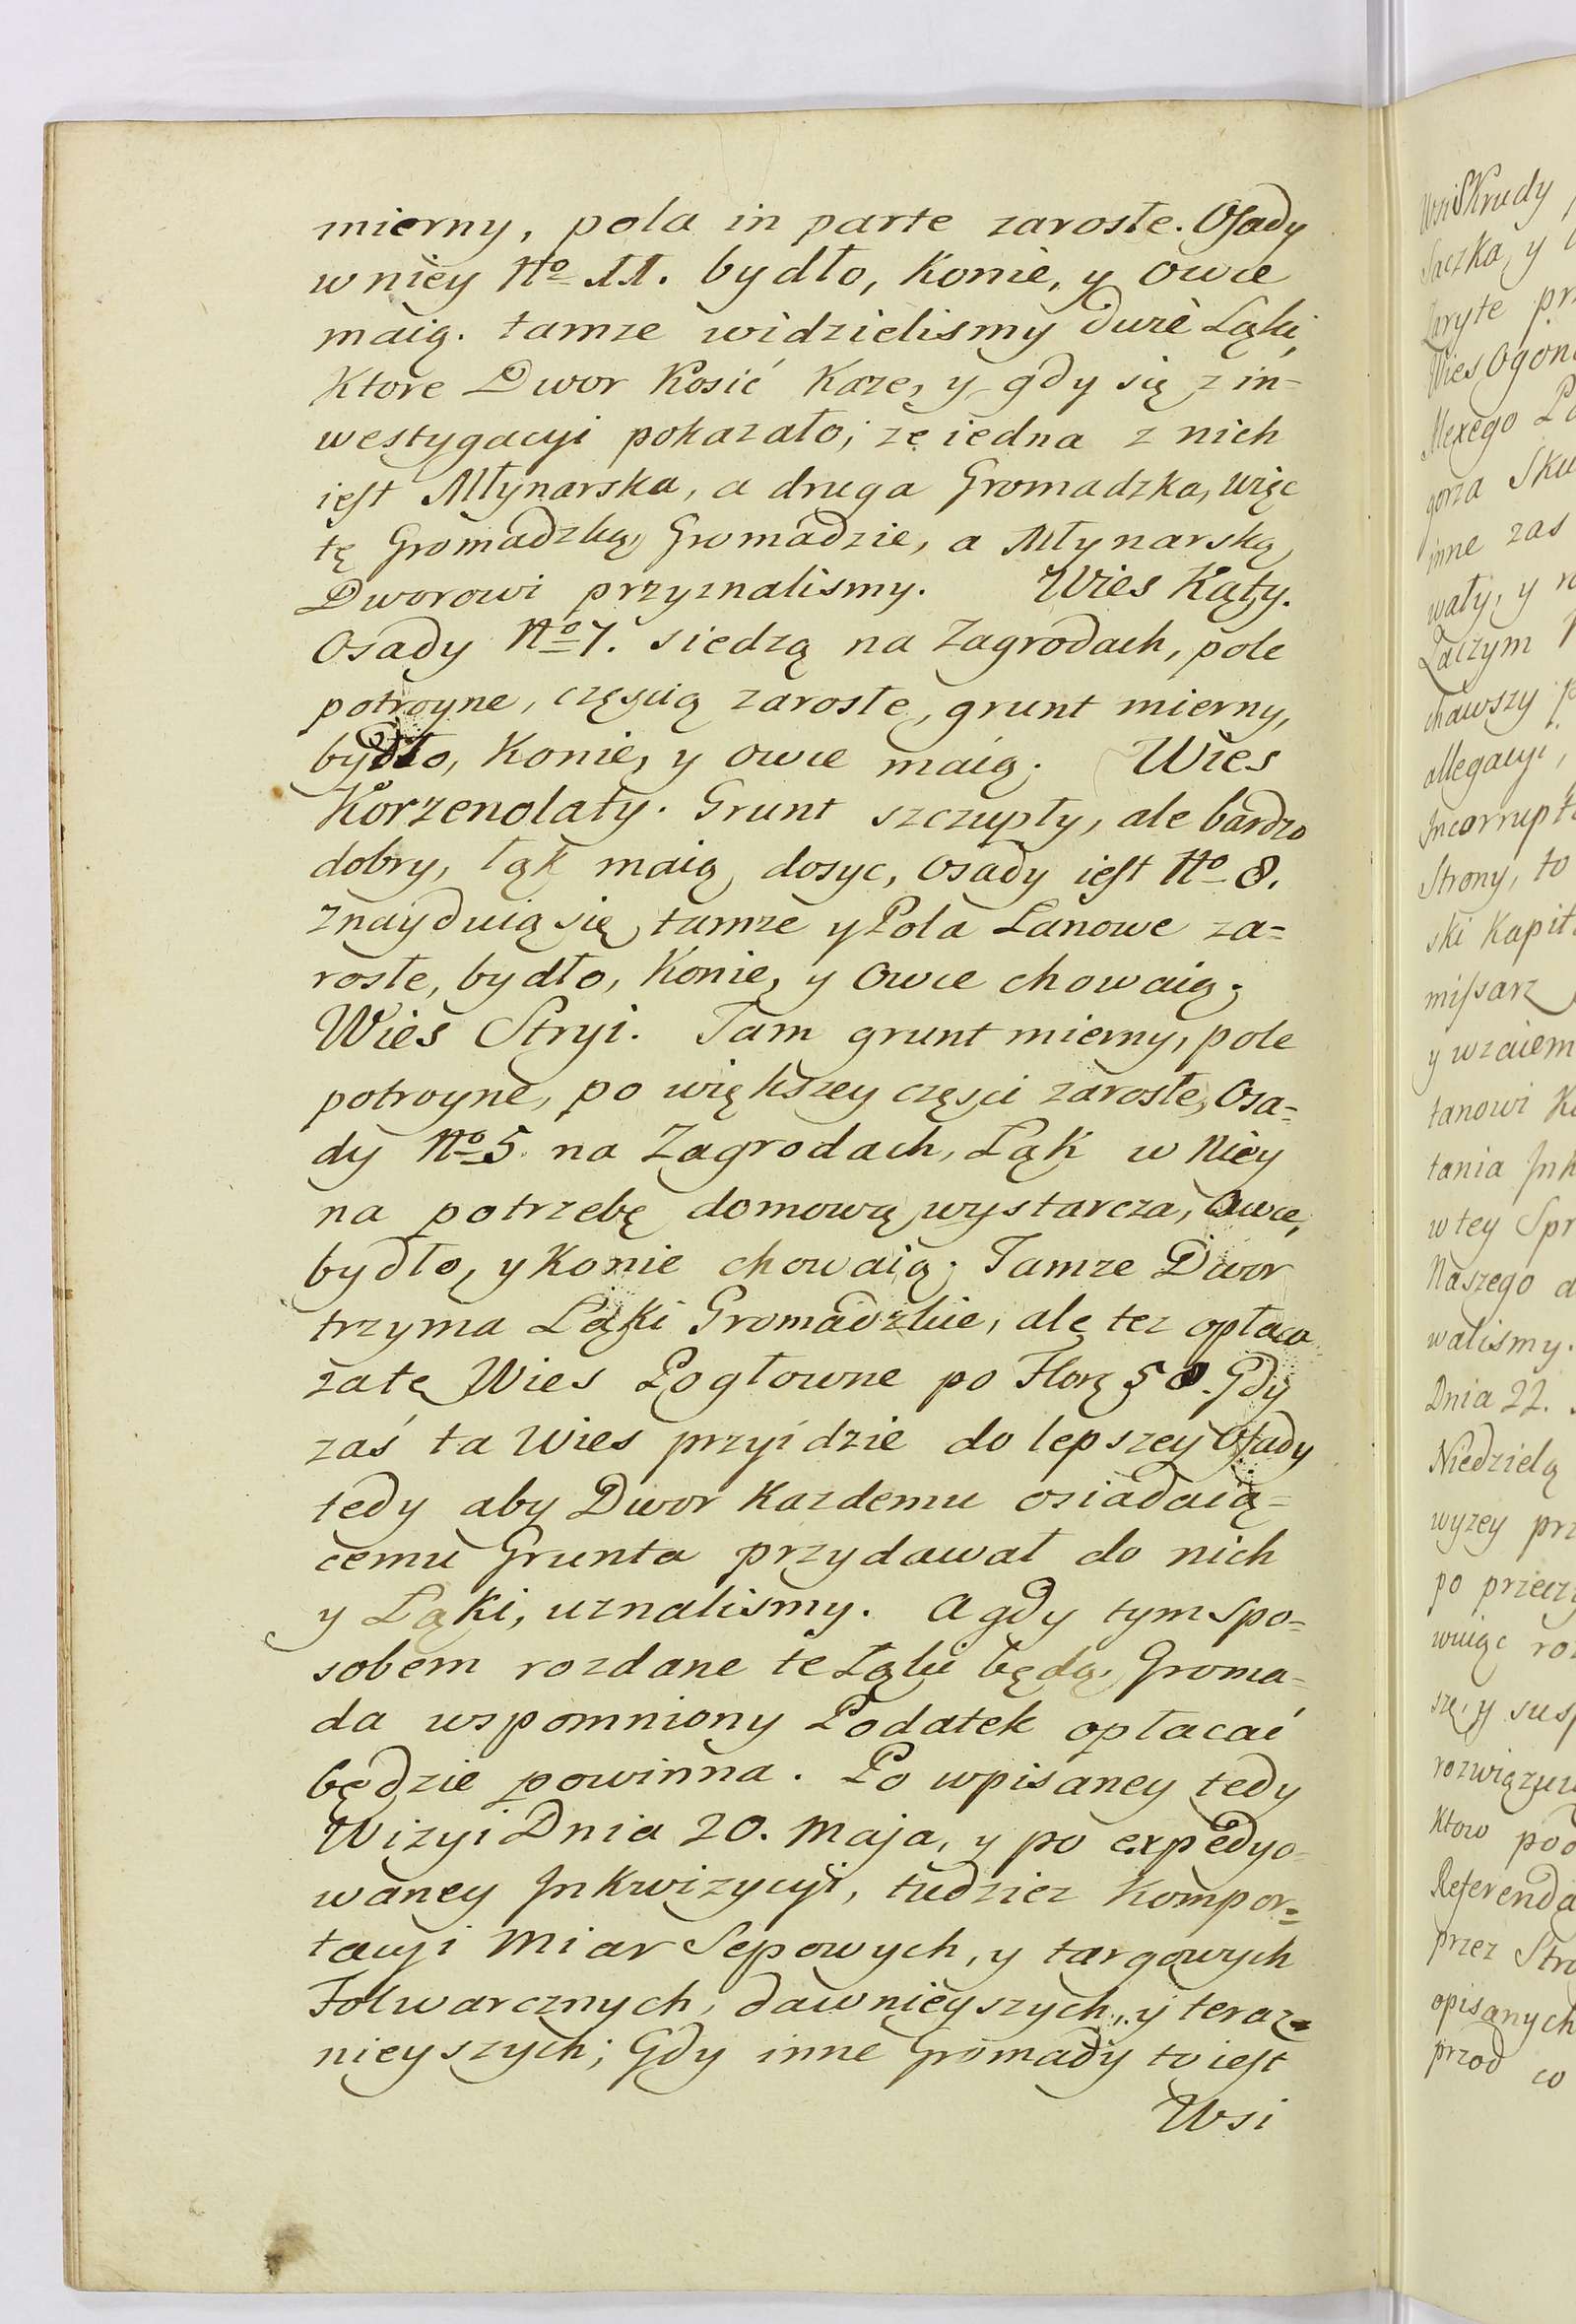 mierny, pola in parte zarosłe. Osady
w niey No 11. bydło, Konie, y owce
maią. tamze widzielismy duże Łąki,
Ktore Dwor Kosić Kaze, y gdy się z in-
westygacyi pokazało, ze iedna z nich
iest Młynarska, a druga Gromadzka, więc
tę Gromadzką, Gromadzie, a Młynarską,
Dworowi przyznalismy. Wies Kąty.
Osady No 7. siedzą na Zagrodach, pole
potroyne, częscią zarosłe, grunt mierny,
bydło, Konie, y owce maią. Wies
Korzenolaty. Grunt szczupły, ale bardzo
dobry, łąk maią, dosyc, osady iest No 8.
Znayduią się tamze y Pola Łanowe za=
rosłe, bydło, Konie, y Owce chowaią;
Wies Stryi. Tam grunt mierny, pole
potroyne, po większey częsci zarosłe, Osa=
dy No 5. na Zagrodach, Łąk w Niey
na potrzebę domową wystarcza, Owce,
bydło, y Konie chowaią; Tamze Dwor
trzyma Łąki Gromadzkie, ale tez opłaca
zatę Wies Pogłowne po Florę 50. Gdy
zaś ta Wies przyidzie do lepszey Osady
tedy aby Dwor Kazdemu osiadaią=
cemu Grunta przydawał do nich
y Łąki, uznalismy. A gdy tym spo=
sobem rozdane te Łąki będą, Groma=
da wspomniony Podatek opłacać
będzie powinna. Po wpisaney tedy
Wizyi Dnia 20. Maja, y po expedyo=
waney Inkwizycyi, tudziez Kompor=
tacyi Miar Sepowych, y targowych
Folwarcznych, dawnieyszych, y teraz=
nieyszych; Gdy inne Gromady to iest
Wsi
Wsi Skrudy
Saczka, y
Zaryte
Wies
inne zas
wały, y
Zaczym
allegacyi,
Strony, to
ski
missarz
y wzaiem
tanowi
tania
w tey
Naszego
walismy.
Dnia 22.
Niedzielą
wyzey
po
przez
opisanych
przod co